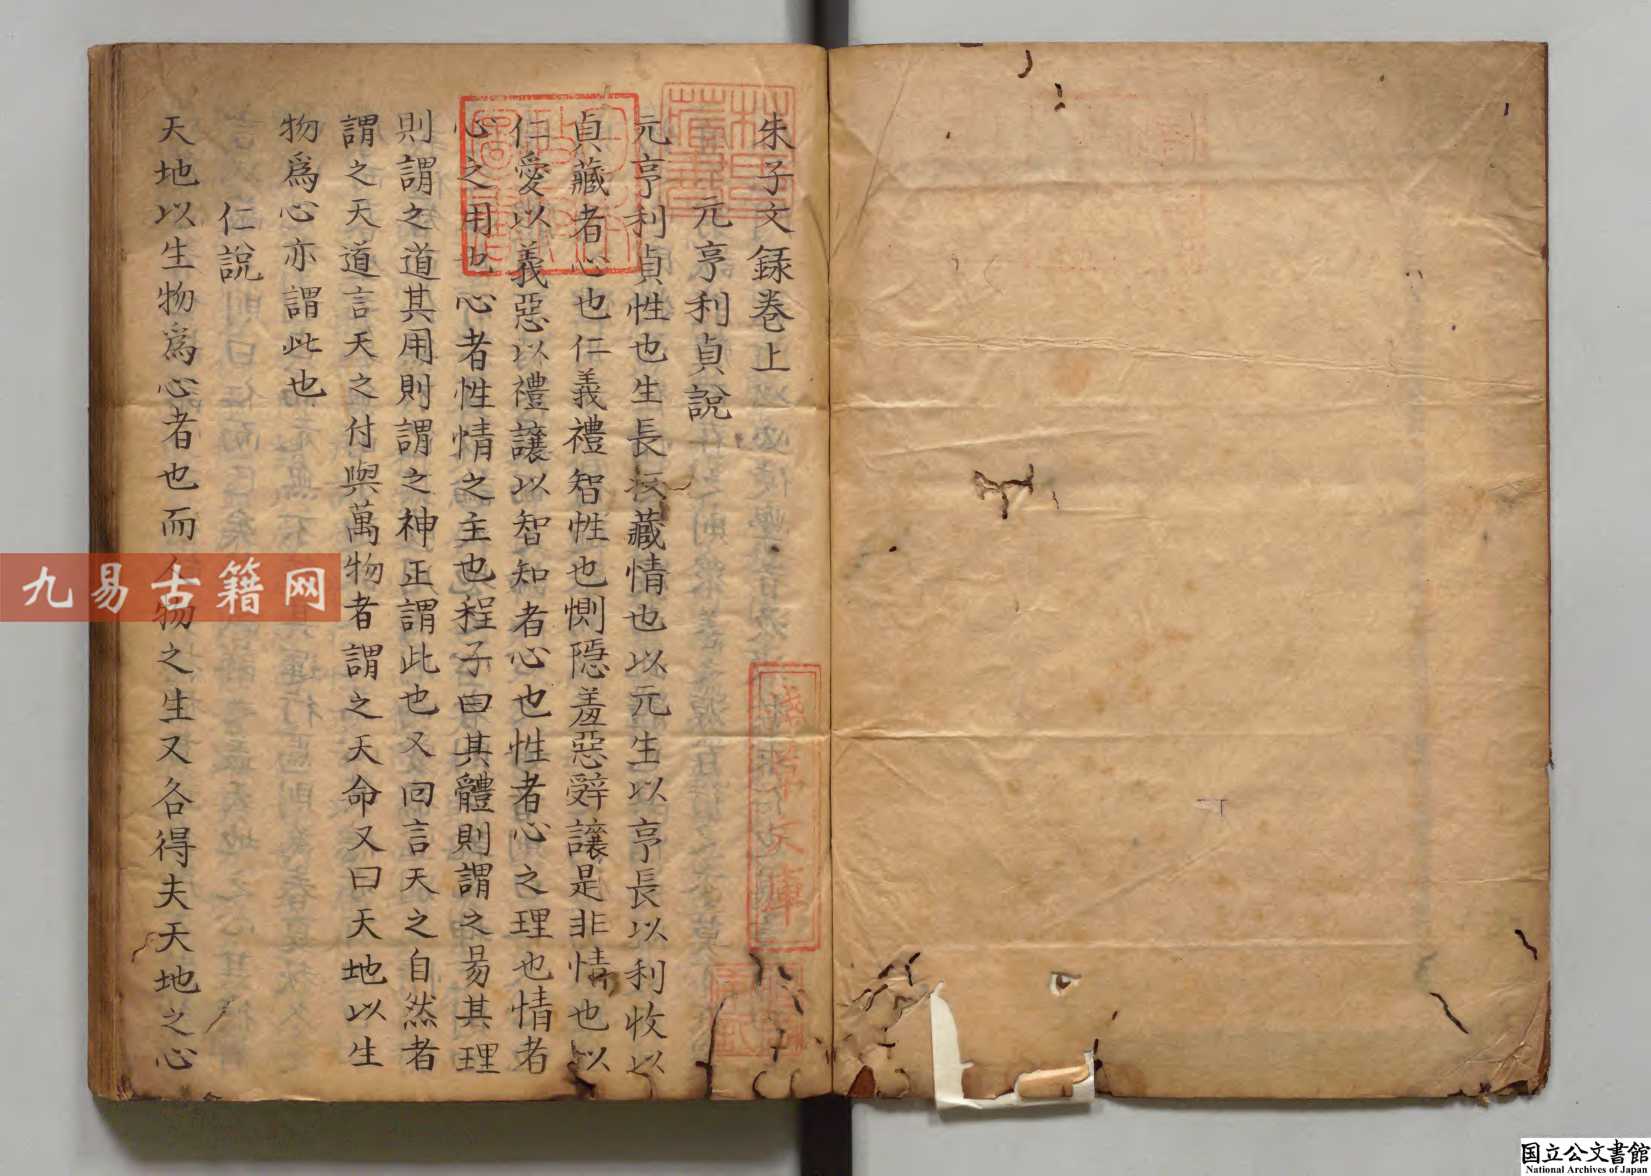 朱子文録卷上
元亨利貞說
元亨利貞性也生長收藏情也以元生以亨長以利收以
貞藏者心也仁義禮智性也惻隱羞惡辭讓是非情也以
仁愛以義惡以禮讓以智知者心也性者心之理也情者
心之用也心者性情之主也程子曰其體則謂之易其理
則謂之道其用則謂之神正謂此也又曰言天之自然者
謂之天道言天之付與萬物者謂之天命又曰天地以生
物爲心亦謂此也
仁說
天地以生物爲心者也而人物之生又各得夫天地之心
淺草文庫
九易古籍网
国立公文書館
National Archives of Japan